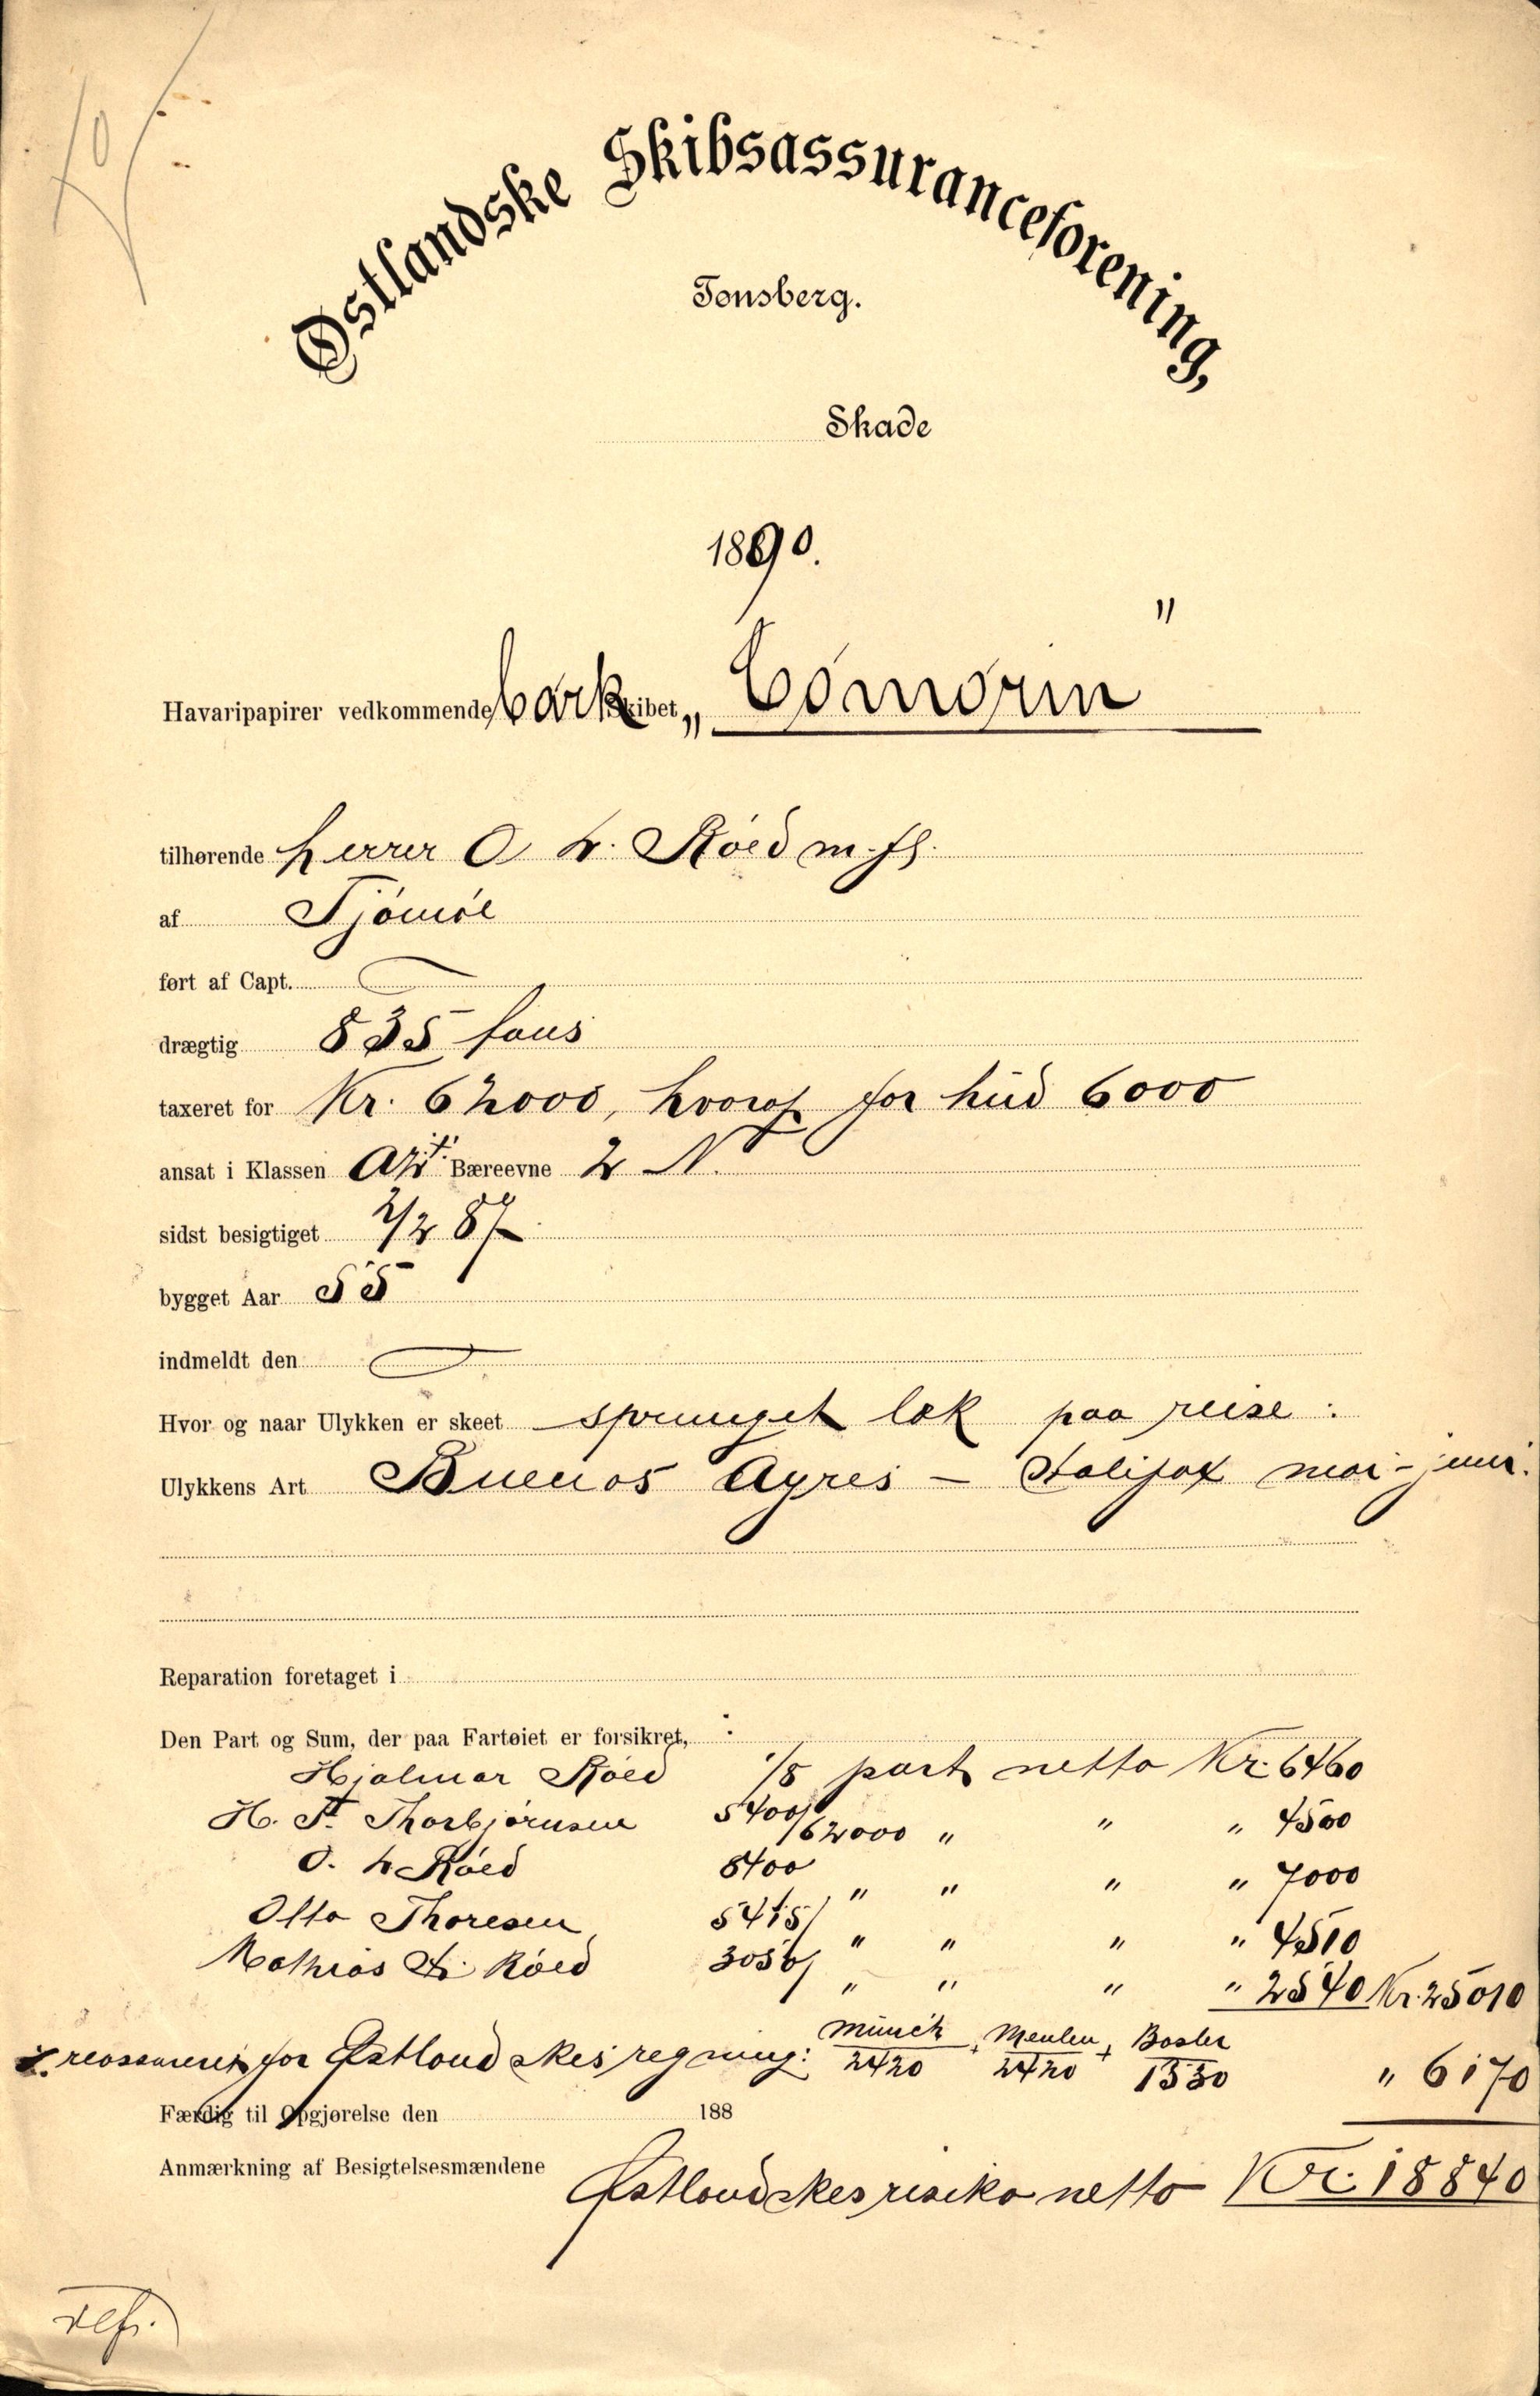 Østlandske Skibsassuranceforening,
Tønsberg.
Skade
1890.
Havaripapirer vedkommende bark Skibet „Comorin"
tilhørende herrer O L. Røed m. fl.
af Tjømøe
ført af Capt.
drægtig 835 tons
taxeret for Kr. 62000, hvoraf for hud 6000
ansat i Klassen Bæreevne 2 N.
sidst besigtiget 2/2 87
bygget Aar 55
indmeldt den
Hvor og naar Ulykken er skeet sprunget læk paa reise:
Ulykkens Art Buenos Ayres – Halifax mai-juni.
Reparation foretaget i
Den Part og Sum, der paa Fartøiet er forsikret, :
Hjalmar Røed 1/8 part netto Kr. 6460
H. Thorbjørnsen 5400/62000 " " " 4500
O. L Røed 8400/ " " " " 7000
Otto Thoresen 5415/ " " " " 4510
Mathias Røed 3050/ " " " " 2540 Kr. 25010
÷ reassureret for Østlandskes regning: Münch 2420 + Meulen 2420 + Basler 1330 " 6170
Færdig til Opgjørelse den 188
Anmærkning af Besigtelsesmændene
Østlandskes risiko netto Kr. 18840